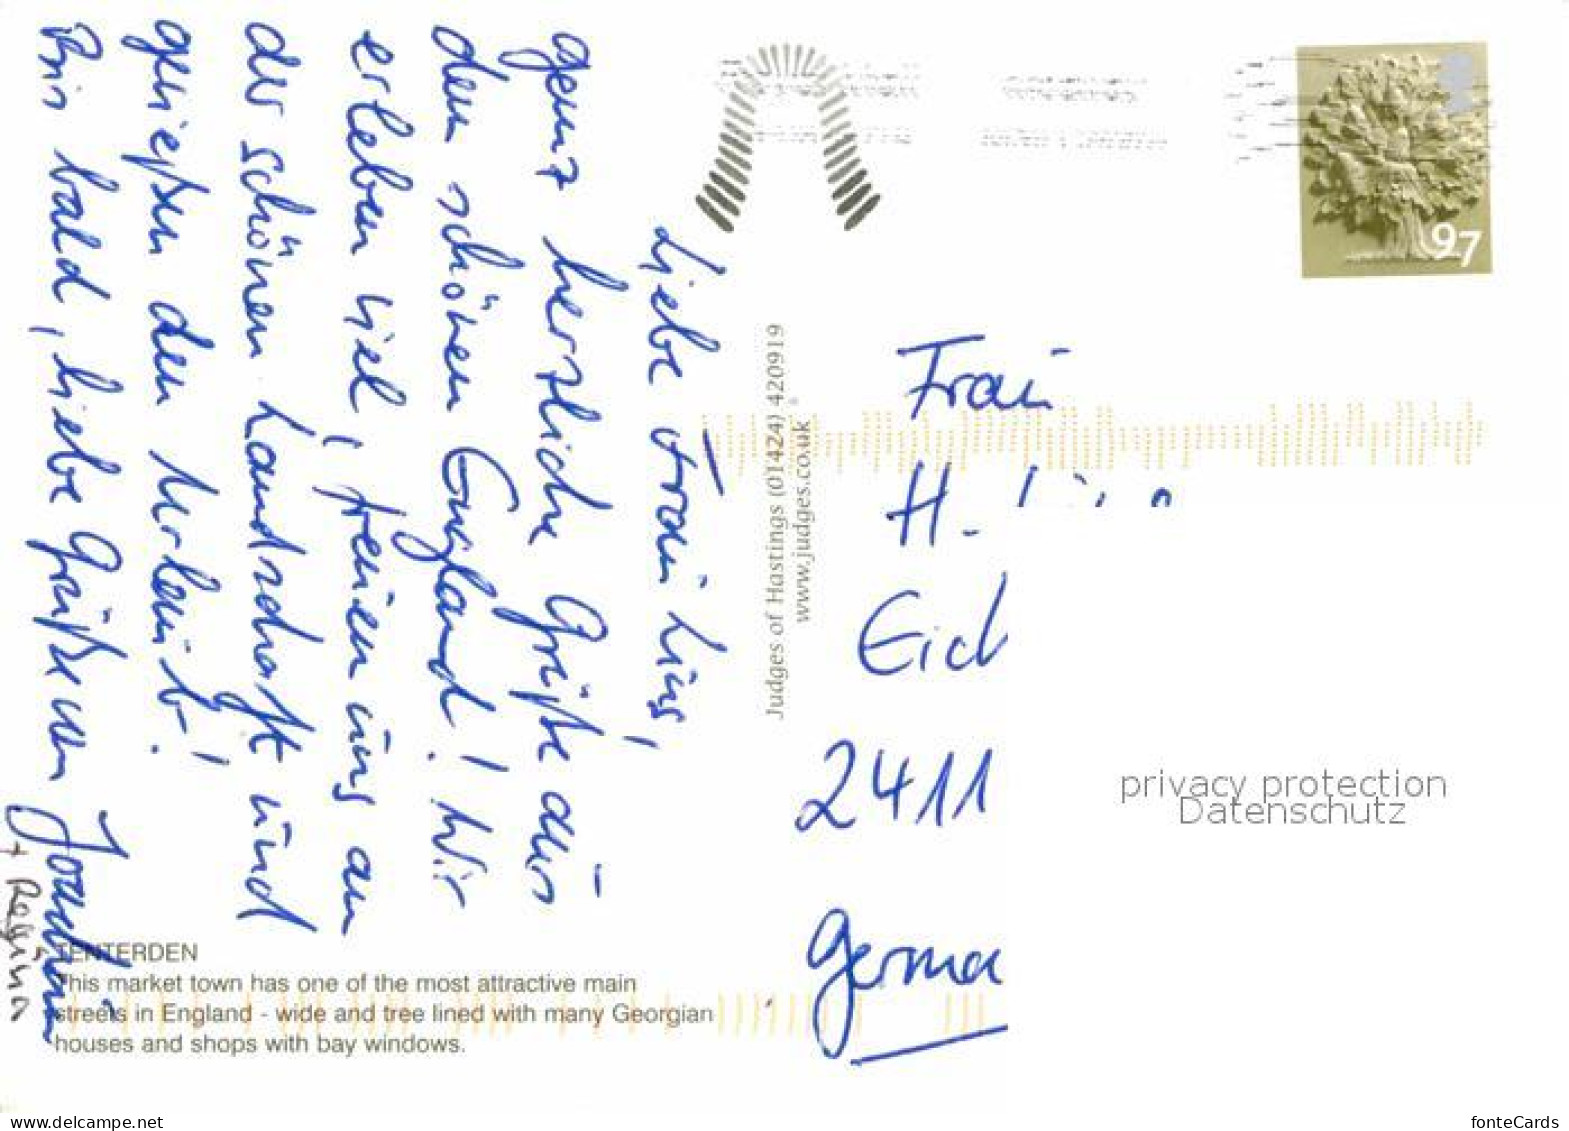 Liebe Frau Lüs,
ganz herzliche Grüße aus
dem schönen England! Wir
erleben viel, freuen uns an
der schönen Landschaft und
genießen den Urlaub!
Bis bald, liebe Grüße von Joachim
+ Regina
TENTERDEN
This market town has one of the most attractive main
streets in England - wide and tree lined with many Georgian
houses and shops with bay windows.
Judges of Hastings (01424) 420919
www.judges.co.uk
97
Frau
H.
2411
Germa
privacy protection
Datenschutz
www.delcampe.net
fonteCards